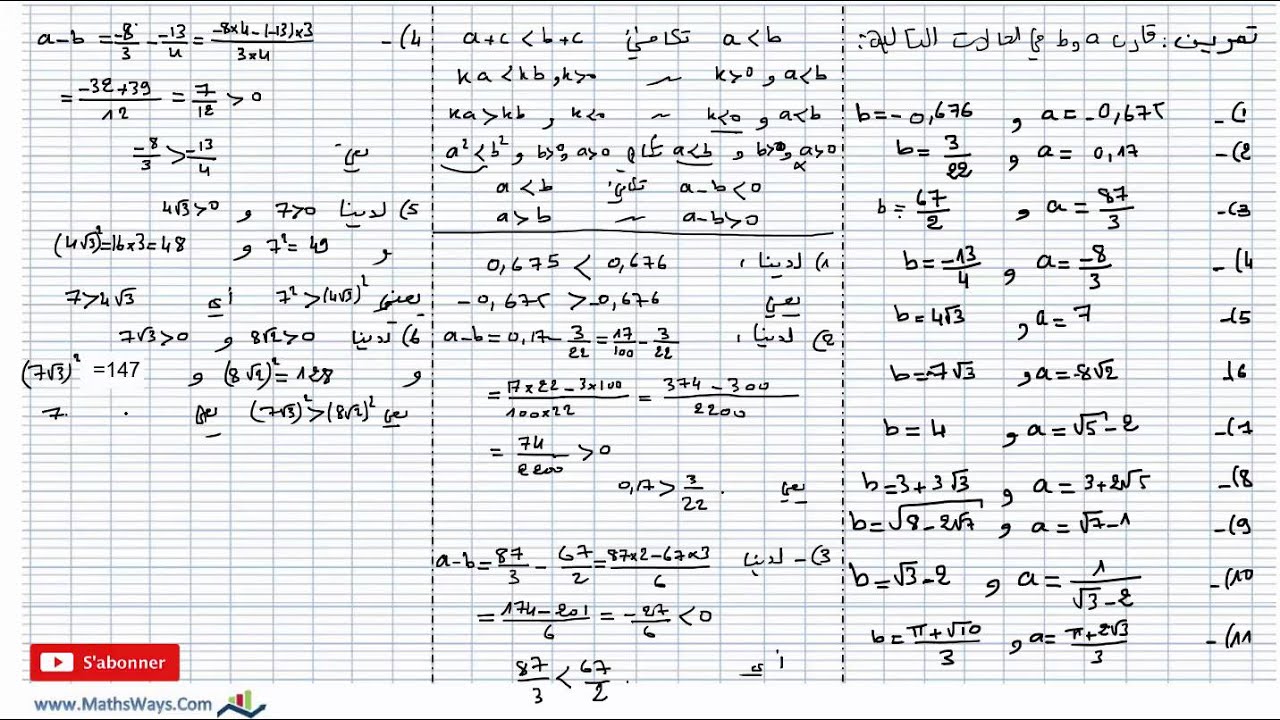 تمرين: قارن a و b في الحالات التالية:
1)- a = -0,675 , b = -0,676
2)- a = 0,17 , b = 3/22
3)- a = 87/3 , b = 67/2
4)- a = -8/3 , b = -13/4
5)- a = 7 , b = 4√3
6) a = -8√2 , b = -7√3
7)- a = √5 - 2 , b = 4
8)- a = 3+2√5 , b = 3+3√3
9)- a = √7-1 , b = √(8-2√7)
10)- a = 1/(√3-2) , b = √3-2
11)- a = (π+2√3)/3 , b = (π+√10)/3
a < b تكافئ a+c < b+c
a<b و k>0 ~ ka < kb , k>0
a<b و k<0 ~ ka > kb , k<0
a>0 , b>0 و a<b تكافئ a>0 , b>0 , a² < b²
a-b < 0 تكافئ a < b
a-b > 0 ~ a > b
1) لدينا : 0,675 < 0,676
يعني -0,675 > -0,676
2) لدينا : a-b = 0,17 - 3/22 = 17/100 - 3/22
= (17×22 - 3×100)/(100×22) = (374 - 300)/2200
= 74/2200 > 0
يعني 0,17 > 3/22 .
3)- لدينا a-b = 87/3 - 67/2 = (87×2 - 67×3)/6
= (174 - 201)/6 = -27/6 < 0
أي 87/3 < 67/2 .
4)- a-b = -8/3 - -13/4 = (-8×4 - (-13)×3)/(3×4)
= (-32+39)/12 = 7/12 > 0
يعني -8/3 > -13/4
5) لدينا 7>0 و 4√3>0
و 7² = 49 و (4√3)² = 16×3 = 48
يعني 7² > (4√3)² أي 7 > 4√3
6) لدينا 8√2>0 و 7√3>0
و (8√2)² = 128 و (7√3)² =147
يعني (7√3)² > (8√2)² يعني 7
S'abonner
www.MathsWays.Com